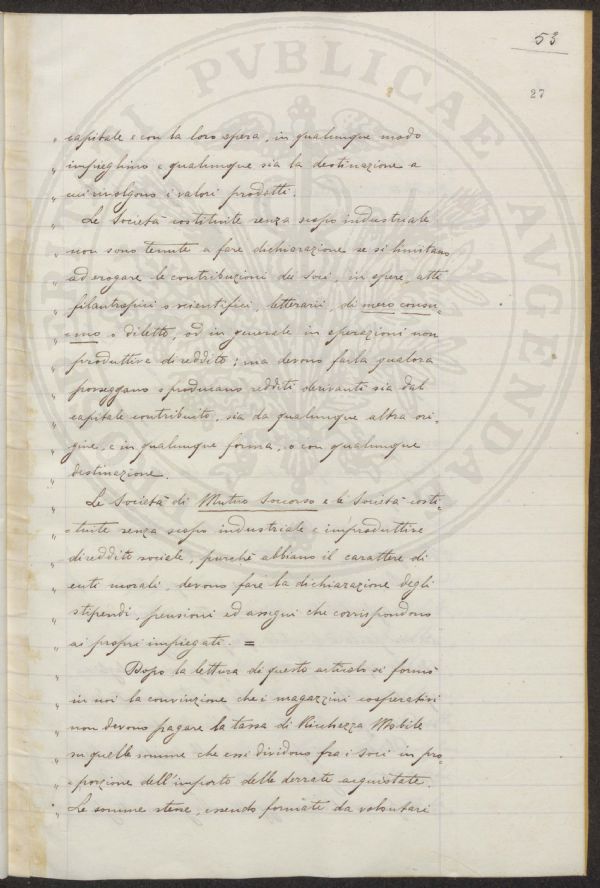 53
27
" capitale e con la loro opera, in qualunque modo
" impieghino e qualunque sia la destinazione a
" cui rivolgono i valori prodotti.
" Le Società costituite senza scopo industriale
" non sono tenute a fare dichiarazione se si limitano
" ad erogare le contribuzioni dei soci, in opere, atti
" filantropici o scientifici, letterarii, di mero consu-
" mo o diletto, od in generale in operazioni non
" produttive di reddito; ma devono farla qualora
" posseggano o producano redditi derivanti sia dal
" capitale contribuito, sia da qualunque altra ori-
" gine, e in qualunque forma, o con qualunque
" destinazione.
" Le Società di Mutuo Soccorso e le Società costi-
" tuite senza scopo industriale e improduttive
" di reddito sociale, purchè abbiano il carattere di
" enti morali, devono fare la dichiarazione degli
" stipendi, pensioni ed assegni che corrispondono
" ai propri impiegati. =
" Dopo la lettura di questo articolo si formò
" in noi la convinzione che i magazzini cooperativi
" non devono pagare la tassa di Ricchezza Mobile
" su quelle somme che essi dividono fra i soci in pro-
" porzione dell'importo delle derrate acquistate.
" Le somme stesse, essendo formate da volontari